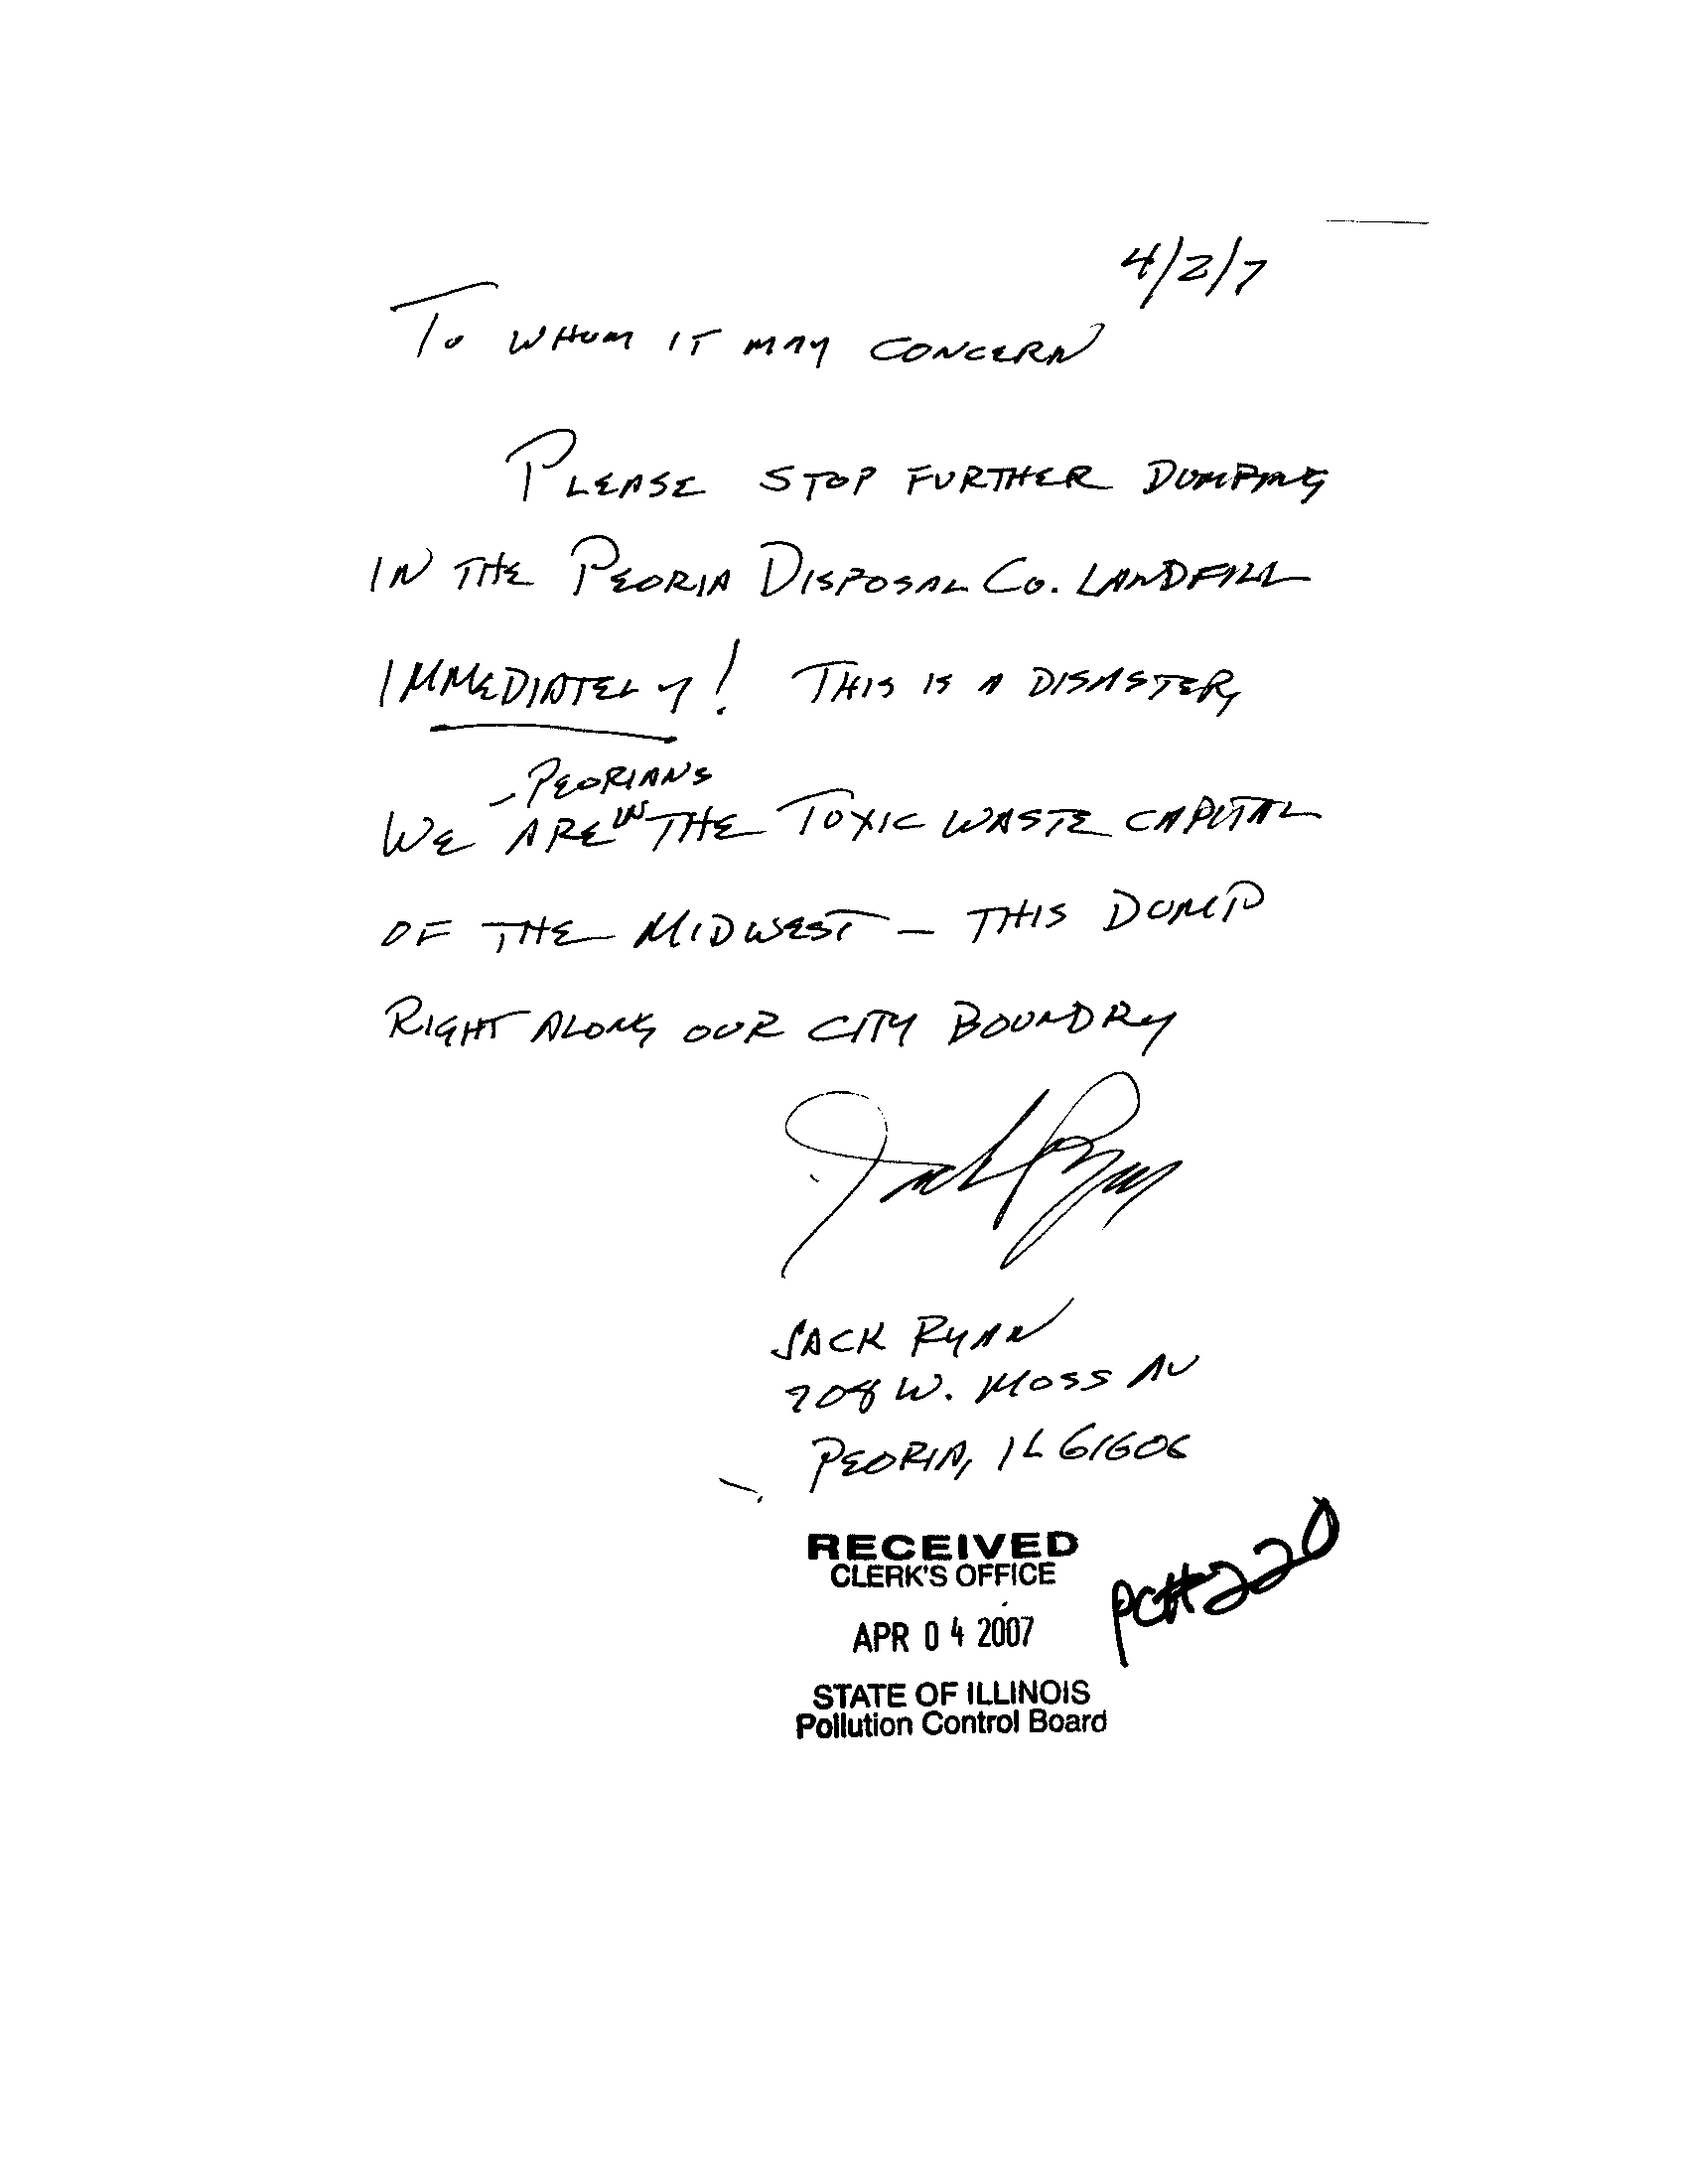 4/2/7
To WHOM IT MAY CONCERN
PLEASE STOP FURTHER DUMPING
IN THE PEORIA DISPOSAL CO. LANDFILL
IMMEDIATELY! THIS IS A DISASTER,
- PEORIANS
WE ARE IN THE TOXIC WASTE CAPITAL
OF THE MIDWEST - THIS DUMP
RIGHT ALONG OUR CITY BOUNDRY
Jack Ryan
JACK RYAN
W. MOSS AV
PEORIA, IL 61606
RECEIVED
CLERK'S OFFICE
APR 04 2007
PC#220
STATE OF ILLINOIS
Pollution Control Board